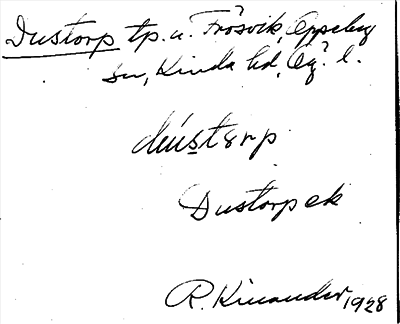 Dustorp tp. u. Frösvik, Oppeby
sn, Kinda hd, Ög. l.
dústorp
Dustorpek
R. Kinander 1928